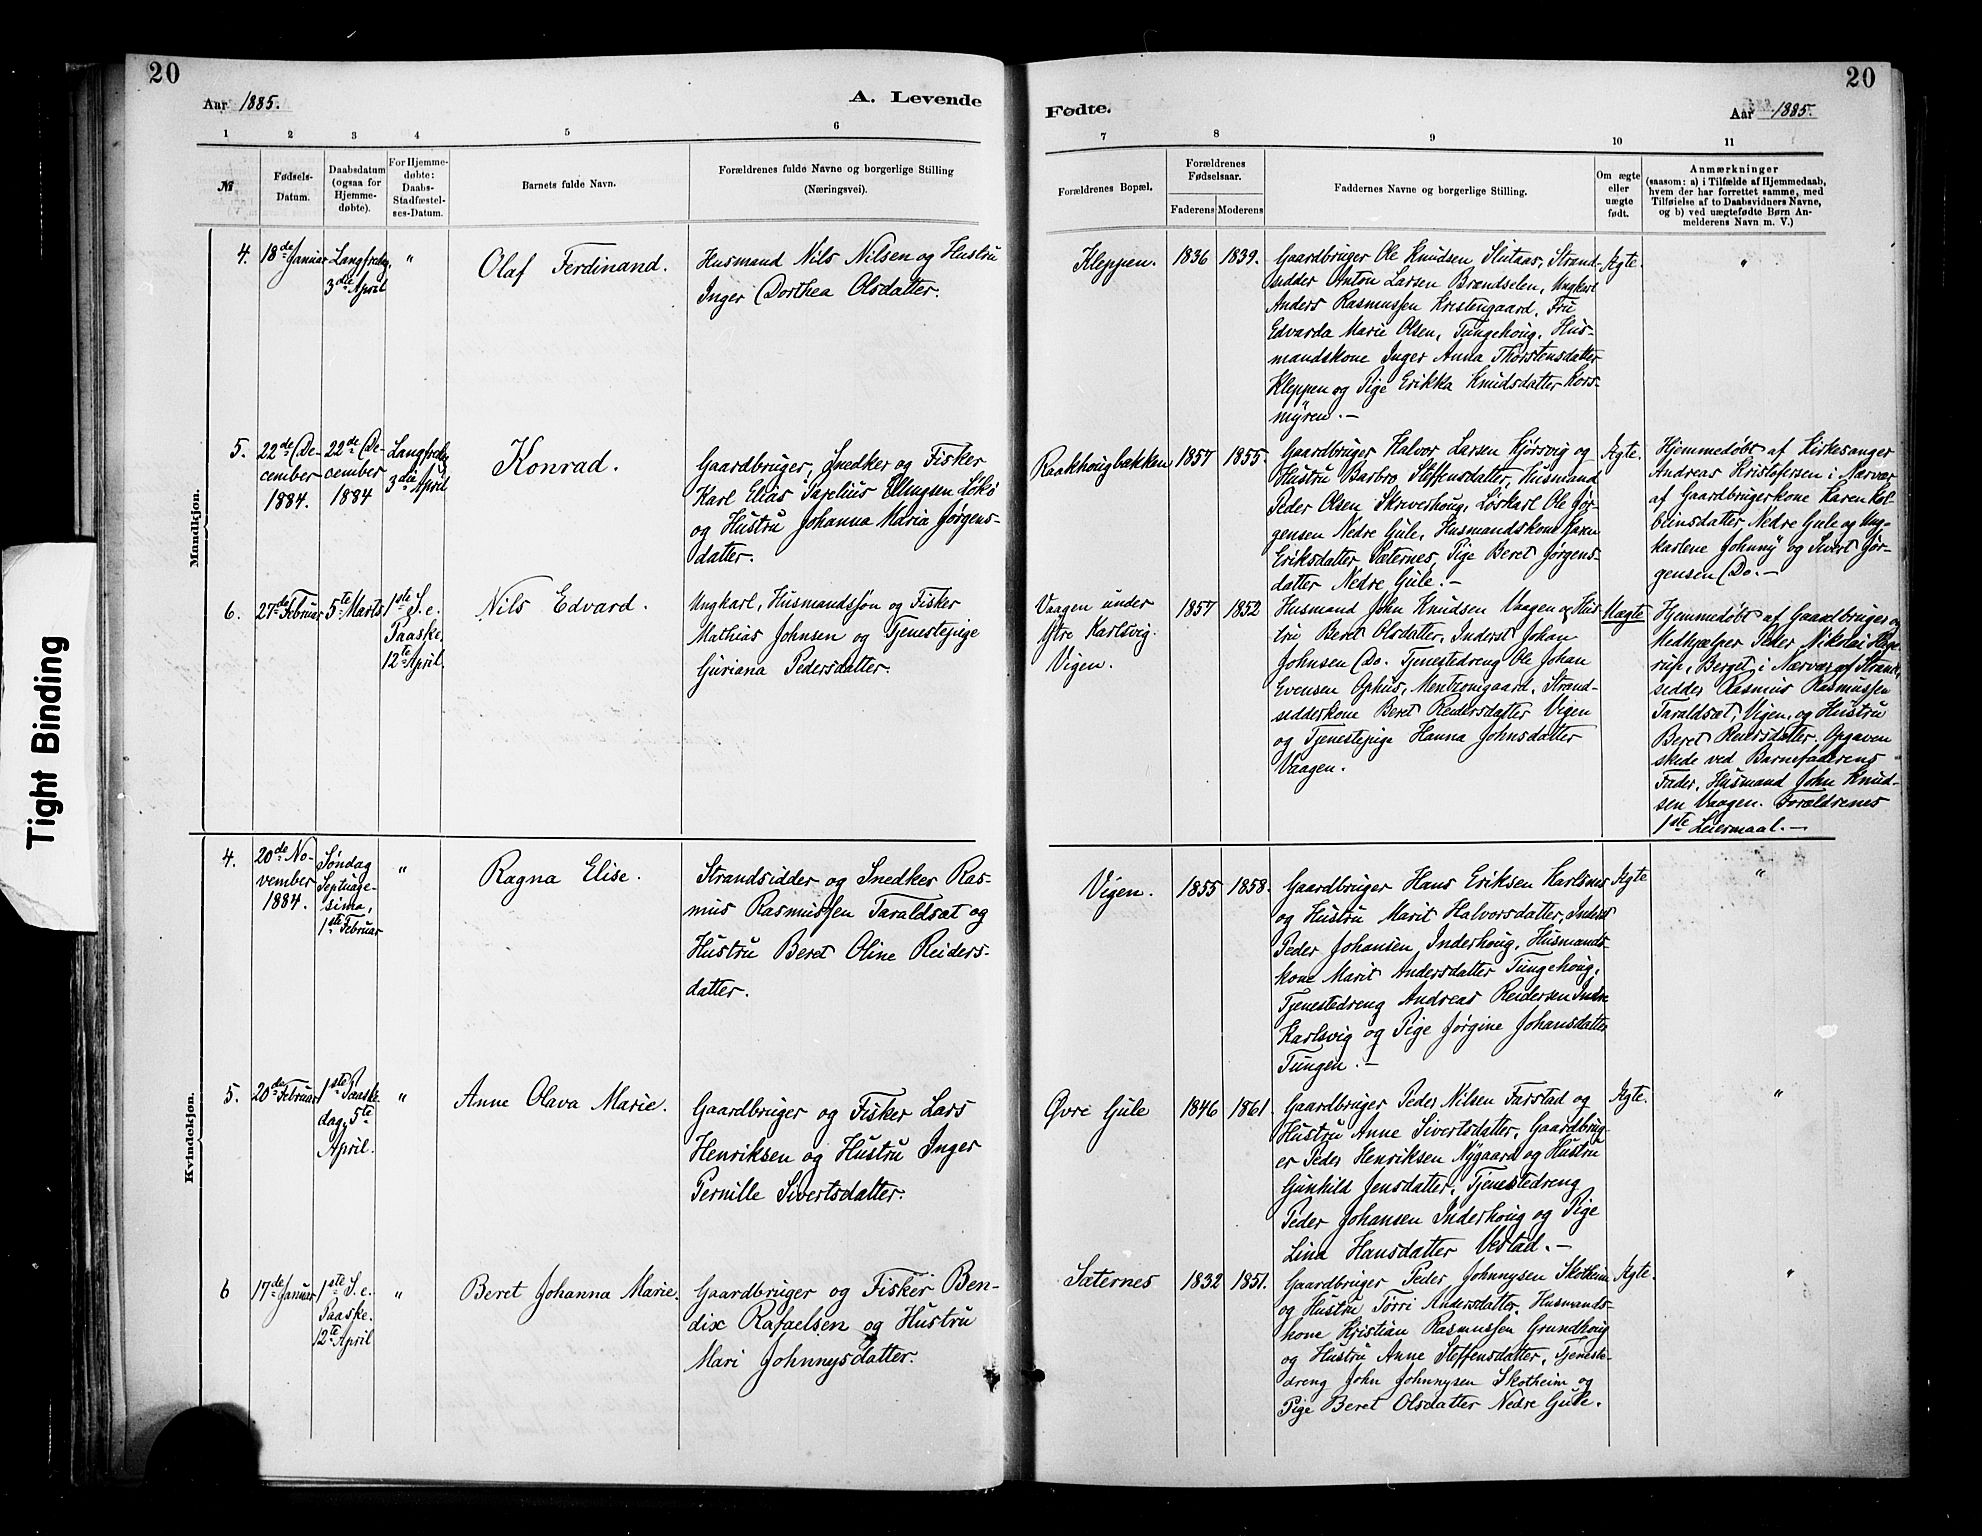 20
Aar 1885.
A. Levende
1
2
3
4
5
6
№
Fødsels-
Datum.
Daabsdatum
(ogsaa for
Hjemme-
døbte).
For Hjemme-
døbte:
Daabs-
Stadfæstel-
ses-Datum.
Barnets fulde Navn.
Forældrenes fulde Navne og borgerlige Stilling
(Næringsvei).
Mandkjøn.
4.
18de Januar
Langfredag
3die April
"
Olaf Ferdinand.
Husmand Nils Nilsen og Hustru
Inger Dorthea Olsdatter.
5.
22de De-
cember
1884.
22de De-
cember
1884
Langfredag
3die April
Konrad.
Gaardbruger, Snedker og Fisker
Karl Elias Parelius Ellingsen
og Hustru Johanna Maria Jørgens-
datter.
6.
27de Februar
5te Marts
1ste S. e.
Paaske.
12te April.
Nils Edvard.
Ungkarl, Husmandssøn og Fisker
Mathias Johnsen og Tjenestepige
Guriana Pedersdatter.
Kvindekjøn.
4.
20de No-
vember
1884.
Søndag
Septuage-
sima,
1ste Februar
"
Ragna Elise.
Strandsidder og Snedker Ras-
mus Rasmussen Taraldsæt og
Hustru Beret Oline Reiders-
datter.
5.
20de Februar
1ste Paaske-
dag, 5te
April.
"
Anne Olava Marie.
Gaardbruger og Fisker Lars
Henriksen og Hustru Inger
Pernille Sivertsdatter.
6
17de Januar
1ste S. e.
Paaske.
12te April
"
Beret Johanna Marie.
Gaardbruger og Fisker Ben-
dix Rafaelsen og Hustru
Mari Johnnysdatter.
Tight Binding
20
Fødte.
Aar 1885.
7
8
9
10
11
Forældrenes Bopæl.
Forældrenes
Fødselsaar.
Faderens
Moderens
Faddernes Navne og borgerlige Stilling.
Om ægte
eller
uægte
født.
Anmærkninger
(saasom: a) i Tilfælde af Hjemmedaab,
hvem der har forrettet samme, med
Tilføielse af to Daabsvidners Navne,
og b) ved uægtefødte Børn An-
melderens Navn m. V.)
Kleppen.
1836
1839.
Gaardbruger Ole Knudsen Slutaas, Strand-
sidder Anton Larsen Brændselen, Ungkarl
Anders Rasmussen Kristengaard, Fru
Edvarda Marie Olsen, Tungehoug, Hus-
mandskone Inger Anna Thorstensdatter
Kleppen og Pige Erikka Knudsdatter Kors-
myren.—
Ægte.
"
Raakhougbækken
1857
1855.
Gaardbruger Halvor Larsen Kjørsvig og
Hustru Barbro Steffensdatter, Husmand
Peder Olsen Skriverhoug, Løskarl Ole Jør-
gensen Nedre Gule, Husmandskone Karen
Eriksdatter Sæternes, Pige Beret Jørgens-
datter Nedre Gule.—
Ægte.
Hjemmedøbt af Kirkesanger
Andreas Kristofersen i Nærvær
af Gaardbrugerkone Karen Kol-
beinsdatter, Nedre Gule og Ung-
karlene Johnny og Sivert Jør-
gensen Do.—
Vaagen under
Ytre Karlsvig.
Vigen.
1857
1852
Husmand John Knudsen Vaagen og Hus-
tru Beret Olsdatter, Inderst Johan
Johnsen Do. Tjenestedreng Ole Johan
Evensen Ophus, Mentzonigaard, Strand-
sidderkone Beret Reidersdatter Vigen
og Tjenestepige Hanna Johnsdatter
Vaagen.
Uægte
Hjemmedøbt af Gaardbruger og
Medhjælper Peder Nikolai Hage-
rup, Berget i Nærvær af Strand-
sidder Rasmus Rasmussen
Taraldsæt, Vigen, og Hustru
Beret Reidersdatter. Opgaven
skede ved Barnefaderens
Fader, Husmand John Knud-
sen Vaagen. Forældrenes
1ste Leiermaal.—
Vigen.
1855
1858.
Gaardbruger Hans Eriksen Karlsnes
og Hustru Marit Halvorsdatter, Inderst
Peder Johansen Inderhoug, Husmands-
kone Marit Andersdatter Tungehoug,
Tjenestedreng Andreas Reidersen Indre
Karlsvig og Pige Jørgine Johansdatter
Tungen.—
Ægte
"
Øvre Gule
1846
1861.
Gaardbruger Peder Nilsen Farstad og
Hustru Anne Sivertsdatter, Gaardbrug-
er Peder Henriksen Nygaard og Hustru
Gunhild Jensdatter, Tjenestedreng
Peder Johansen Inderhoug og Pige
Lina Hansdatter Vestad.—
Ægte.
"
Sæternes
1832
1851.
Gaardbruger Peder Johnnysen Skotheim
og Hustru Torri Andersdatter, Husmands-
kone Kristian Rasmussen Grundhoug
og Hustru Anne Steffensdatter, Tjeneste-
dreng John Johnnysen Skotheim og
Pige Beret Olsdatter Nedre Gule.
Ægte.
"